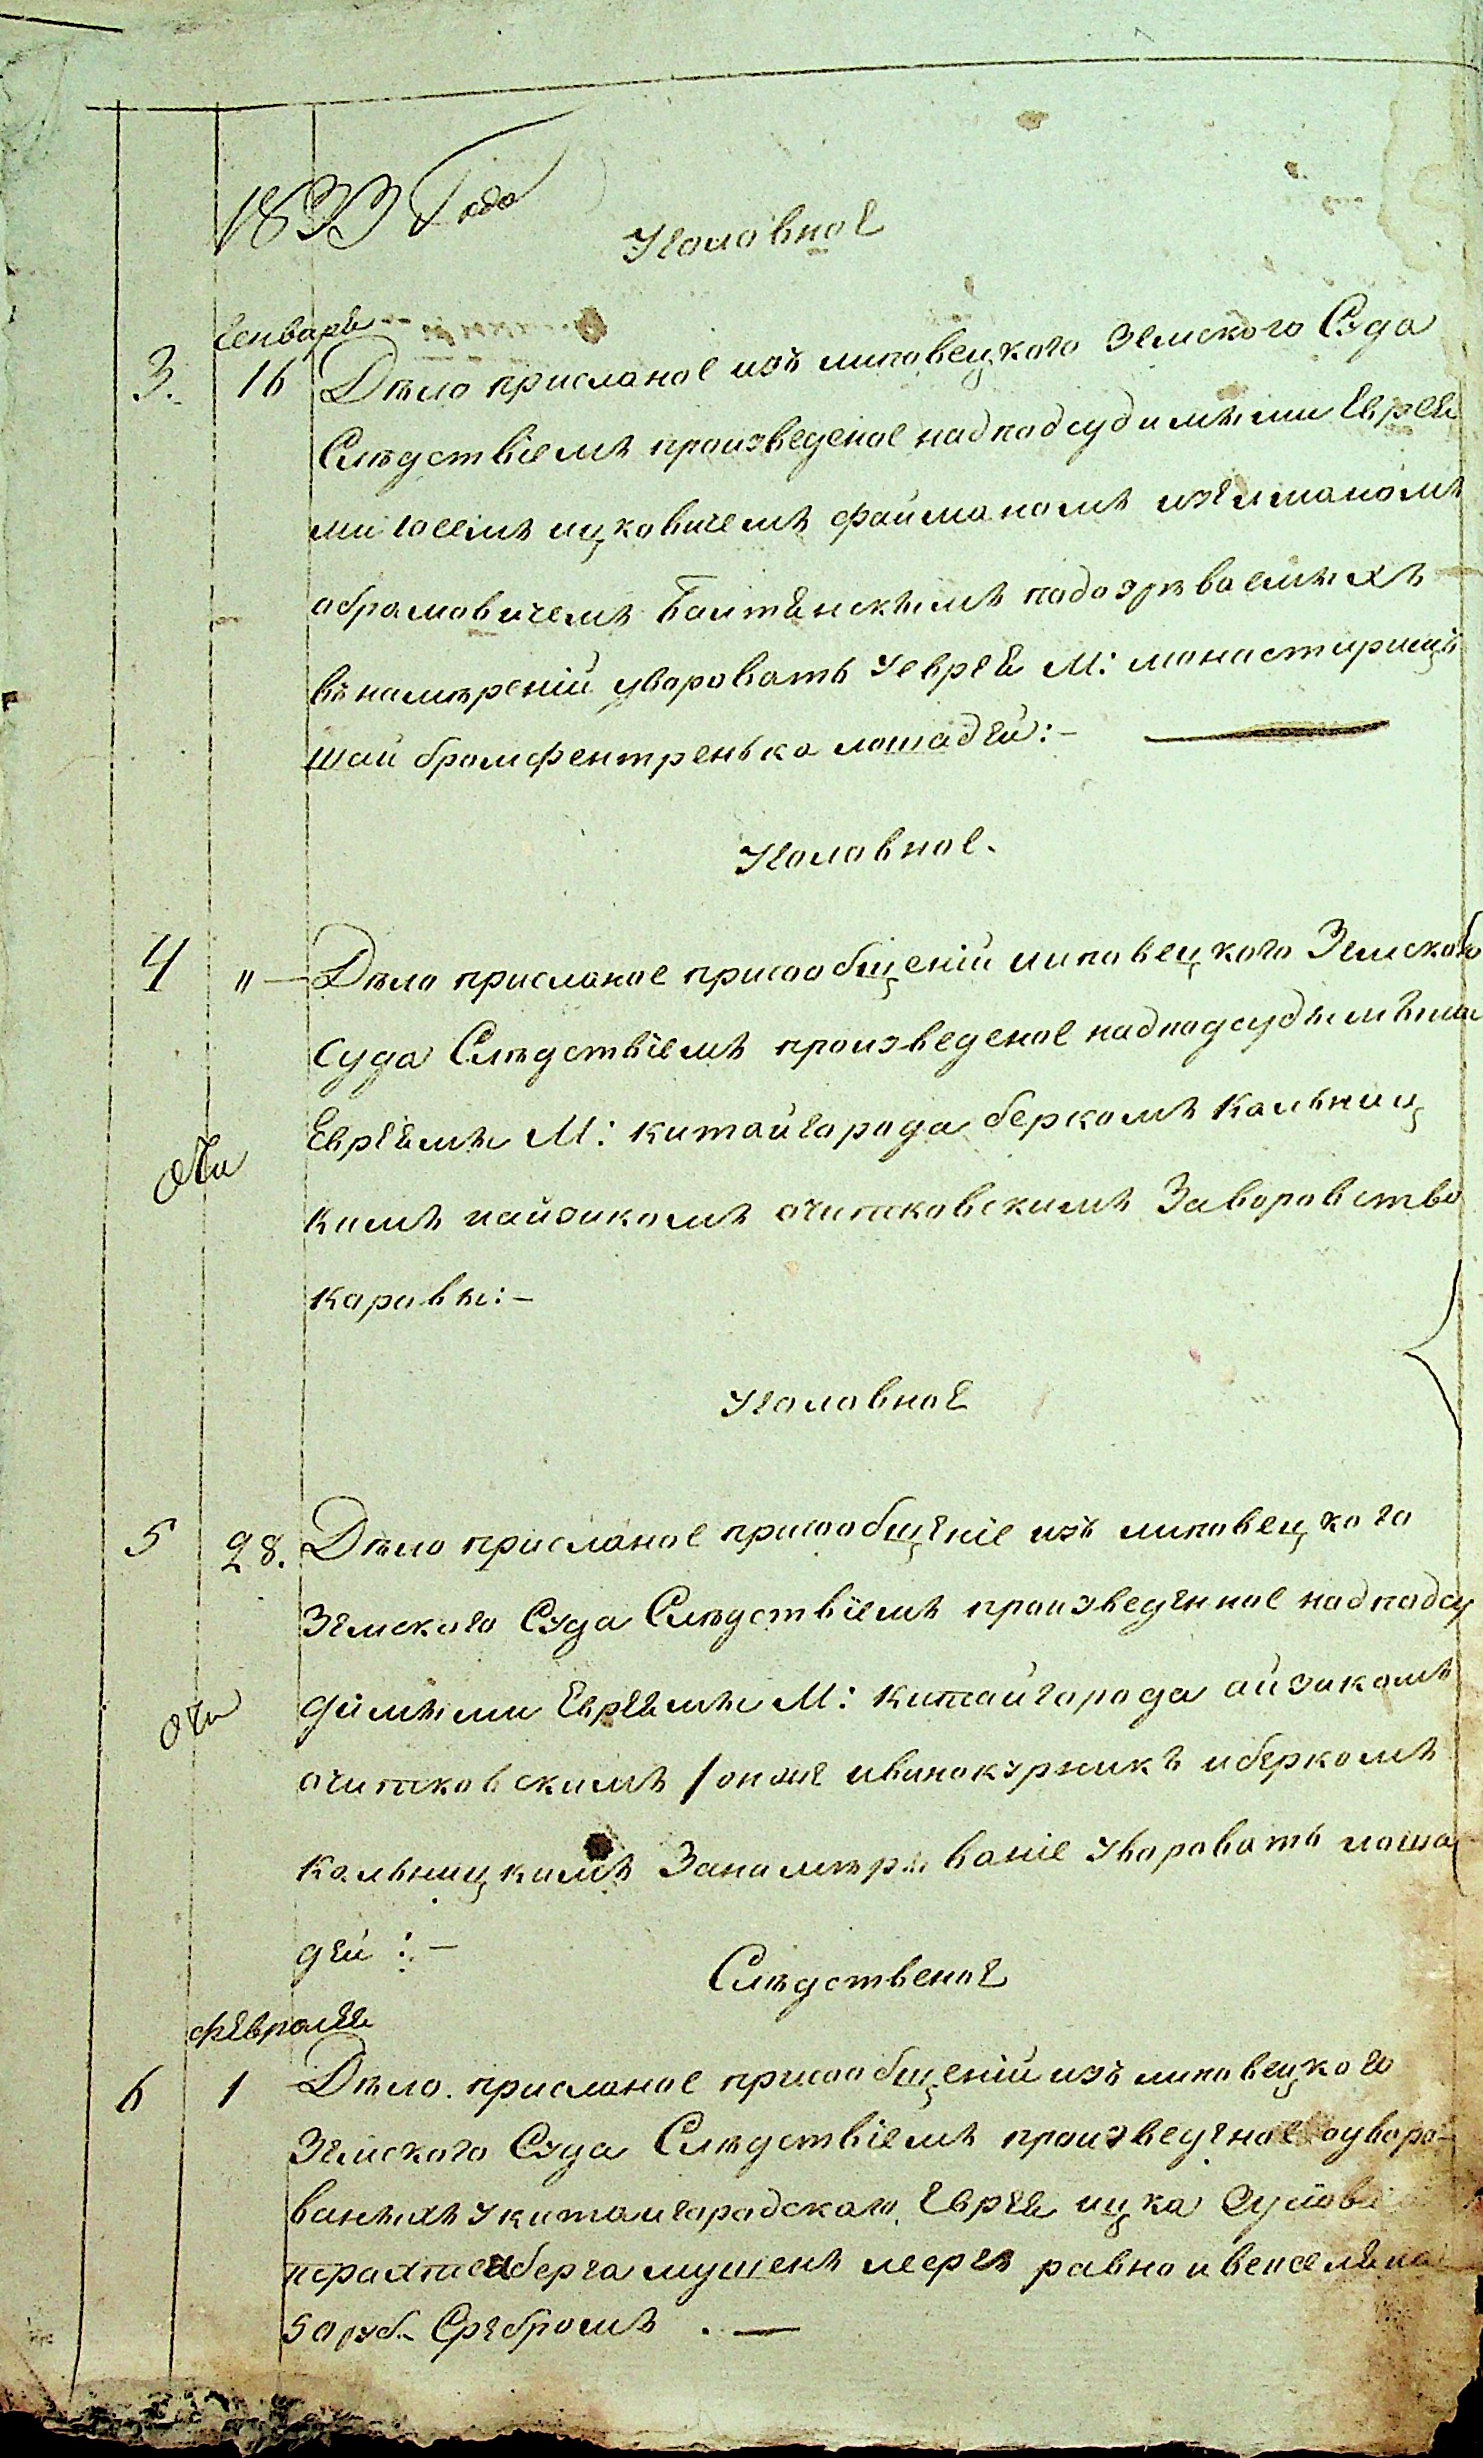 1833 Года
Уголовное
Генваря
3. 16 Дѣло присланое изъ липовецкого Земского Суда
Слѣдствіемъ произведеное надподсудимыми Еврея
ми іосемъ ицковичемъ файманомъ изелманомъ
абрамовичемъ подозрѣваемыхъ
въ намѣреніи уворовать уеврея М: монастирищъ
лошадей:-
Уголовное.
4 " — Дѣло присланое присообщеніи липовецкого Земского
Суда Слѣдствіемъ произведеное надподсудымыми
Евреямы М: китайгорода беркомъ Кальниц
кимъ иайзикомъ очитковскимъ Заворовство
каровы:-
Уголовное
5 28. Дѣло присланое присообщеніе изъ липовецкого
Земского Суда Слѣдствіемъ произведенное надподсу
димыми Евреямы М: Китайгорода айзикомъ
очитковскимъ / онже ивинокурникъ иберкомъ
Кальницкимъ Занамѣрываніе уворовать лоша
дей :-
Слѣдственое
февраля
6 1 Дѣло присланое присообщеніи изъ липовецкого
Земского Суда Слѣдствіемъ произведеное оуворо-
ваныхъ укитайгородскаго Еврея ицка
равно ивекселя на
50 руб. Сребромъ . —